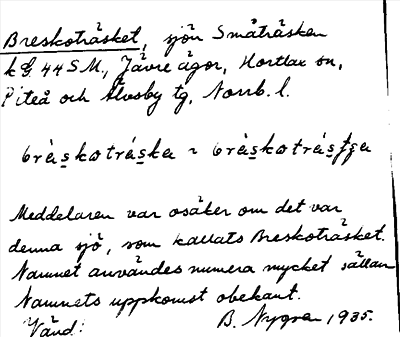 Breskoträsket, sjön Småträsken
k G. 44 S M., Jävre ägor, Hortlax sn,
Piteå och Älvsby tg, Norrb. l.
bràskotráska ~ bràskotrás
Meddelaren var osäker om det var
denna sjö, som kallats Breskoträsket.
Namnet användes numera mycket sällan
Namnets uppkomst obekant.
Vänd! B. Nygren 1935.